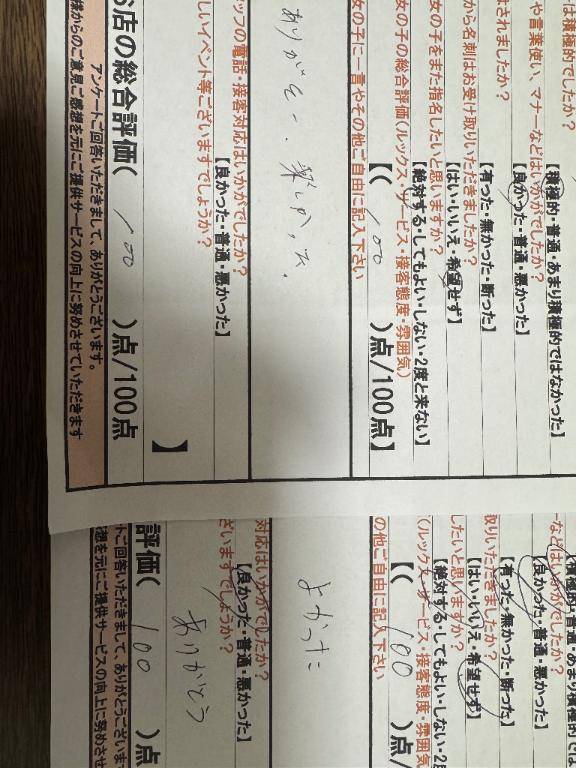 は積極的でしたか?
【積極的・普通・あまり積極的ではなかった】
や言葉使い、マナーなどはいかがでしたか?
【良かった・普通・悪かった】
されましたか?
【有った・無かった・断った】
から名刺はお受け取りいただきましたか?
【はい・いいえ・希望せず】
女の子をまた指名したいと思いますか?
【絶対する・してもよい・しない・2度と来ない】
女の子の総合評価(ルックス・サービス・接客態度・雰囲気)
【( 100 )点/100点】
女の子に一言やその他ご自由に記入下さい
ありがとー、楽しかった。
ッフの電話・接客対応はいかがでしたか?
【良かった・普通・悪かった】
しいイベント等ございますでしょうか?
】
お店の総合評価( 100 )点/100点
アンケートご回答いただきまして、ありがとうございます。
様からのご意見ご感想を元にご提供サービスの向上に努めさせていただきます
【積極的・普通・あまり積極的では
などはいかがでしたか?
【良かった・普通・悪かった】
【有った・無かった・断った】
取りいただきましたか?
【はい・いいえ・希望せず】
したいと思いますか?
【絶対する・してもよい・しない・2度
(ルックス・サービス・接客態度・雰囲気
【( 100 )点/
の他ご自由に記入下さい
よかった
対応はいかがでしたか?
【良かった・普通・悪かった】
ざいますでしょうか?
ありがとう
評価( 100 )点
トご回答いただきまして、ありがとうございま
想を元にご提供サービスの向上に努めさせ